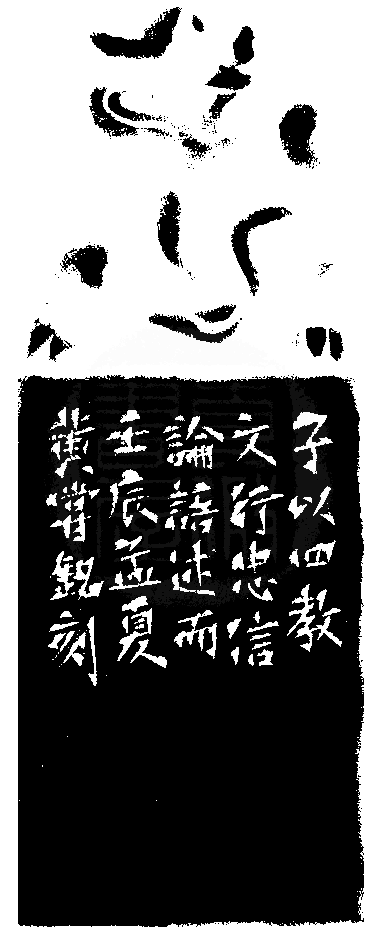 子以四教
文行忠信
論語述而
壬辰孟夏
黄嘗銘刻